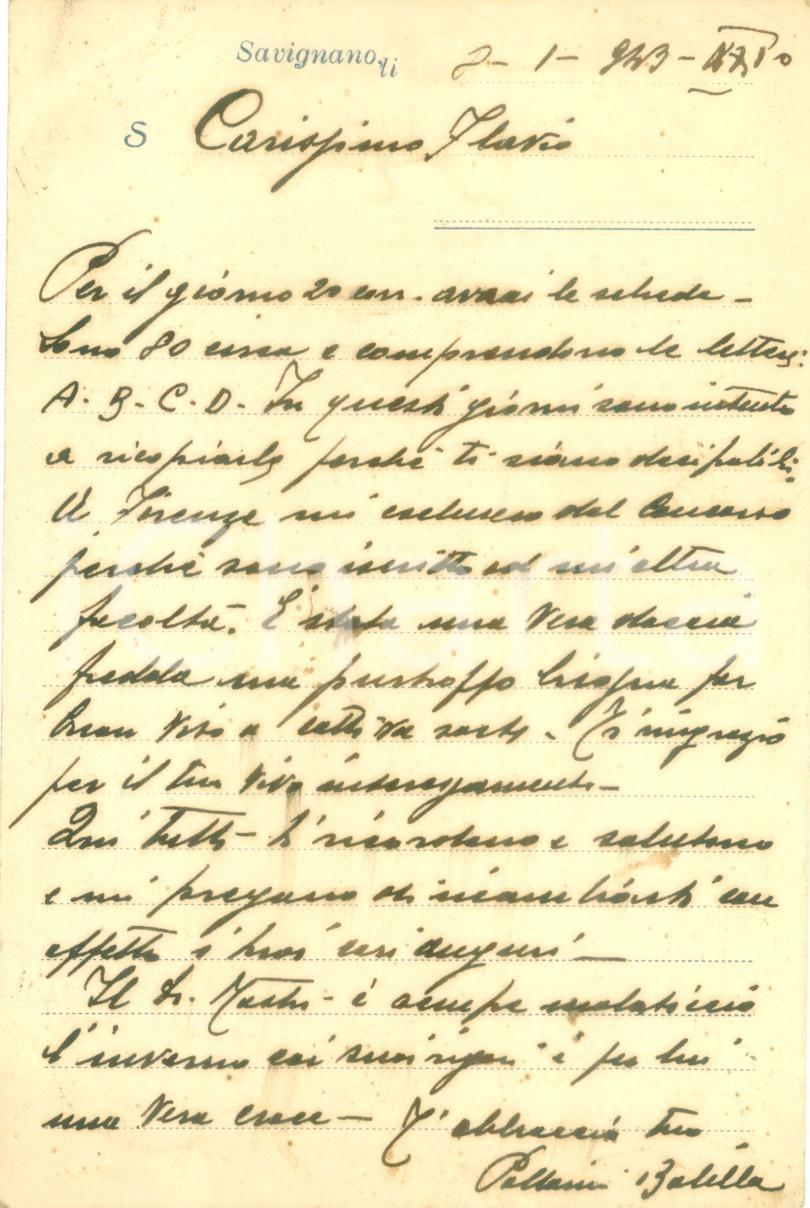 Savignano, li 2-1-943-XXIº
S Carissimo Flavio
Per il giorno 20 corr. avrai le schede -
Sono 80 circa e comprendono le lettere:
A. B. C. D. In questi giorni sono intento
a ricopiarle perchè ti siano decifrabili.
A Firenze mi esclusero dal Concorso
perchè sono iscritto ad un'altra
facoltà. È stata una vera doccia
fredda ma purtroppo bisogna far
buon viso a cattiva sorte. Ti ringrazio
per il tuo vivo interessamento -
Qui tutti ti ricordano e salutano
e mi pregano di ricambiarti con
affetto i tuoi cari auguri -
Il Dr. è sempre malaticcio
l'inverno coi suoi rigori è per lui
una vera croce - T'abbraccia tuo
Balilla